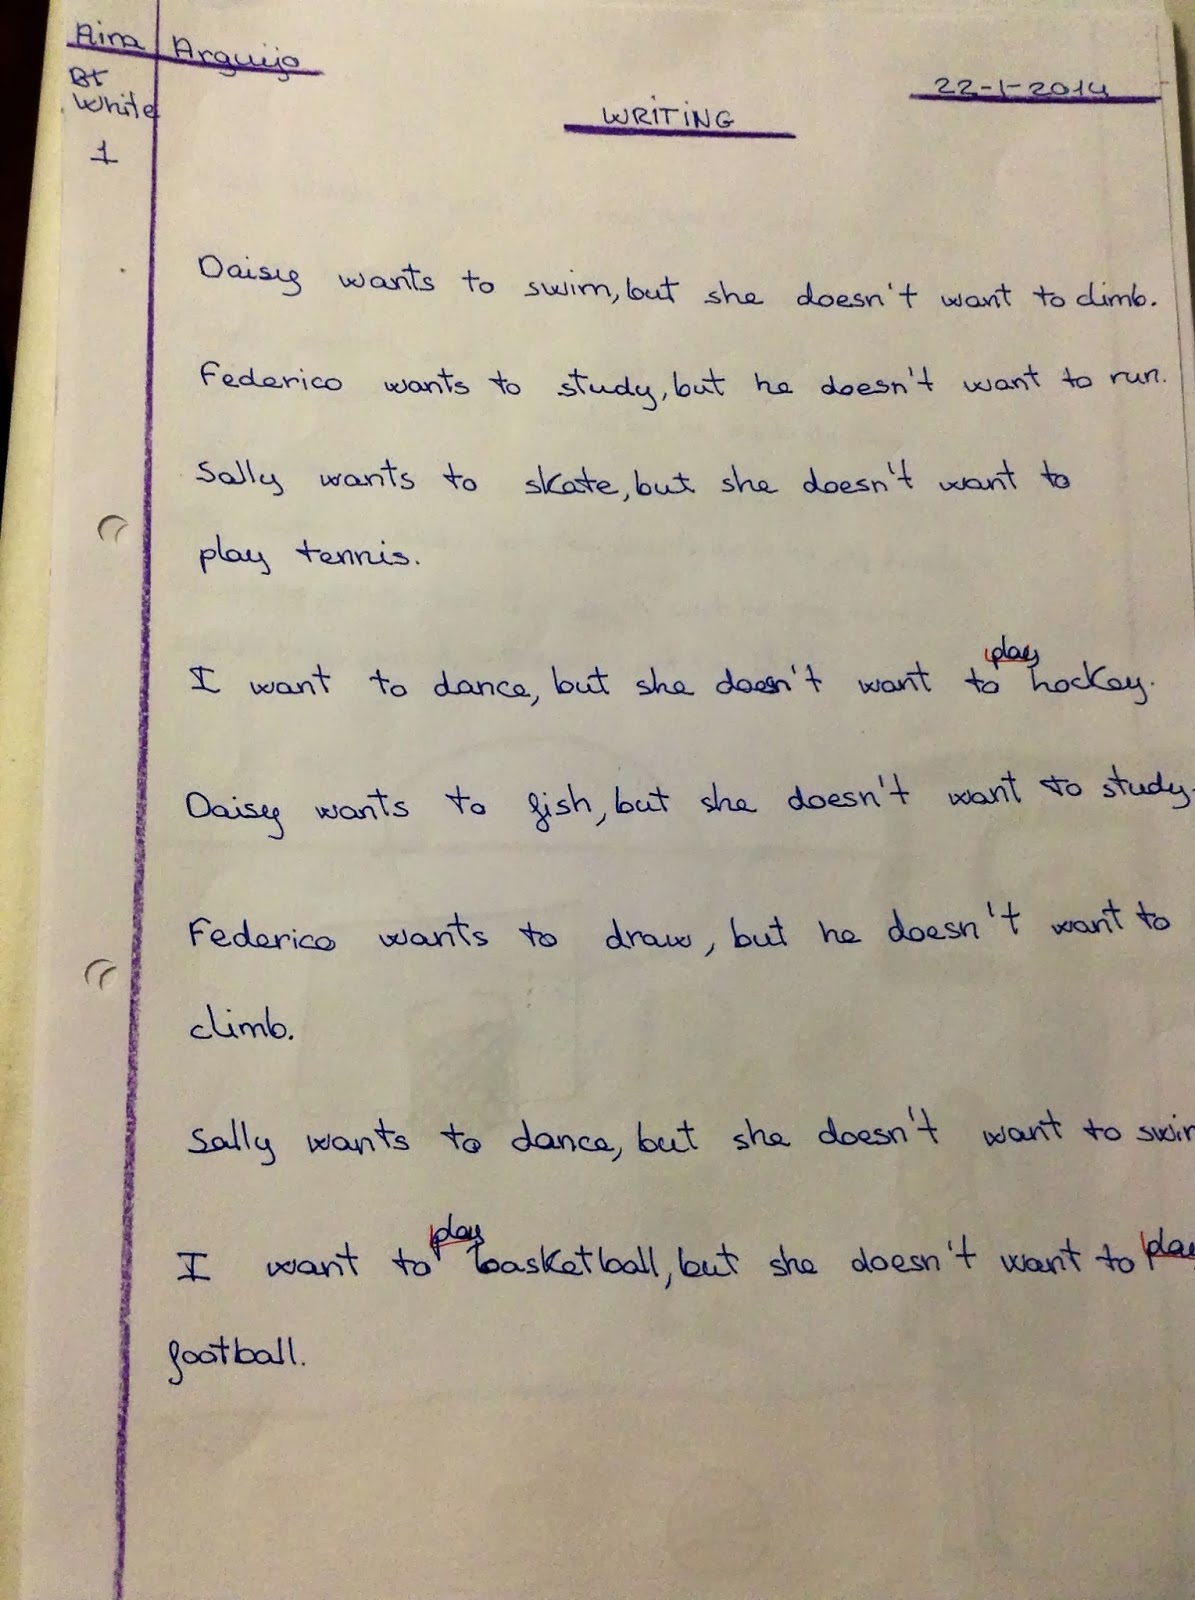 Aina Arguijo
Bt
White
1
22-1-2014
WRITING
Daisy wants to swim, but she doesn't want to climb.
Federico wants to study, but he doesn't want to run.
Sally wants to skate, but she doesn't want to
play tennis.
I want to dance, but she doesn't want to play hockey.
Daisy wants to fish, but she doesn't want to study.
Federico wants to draw, but he doesn't want to
climb.
Sally wants to dance, but she doesn't want to
I want to play basketball, but she doesn't want to play
football.